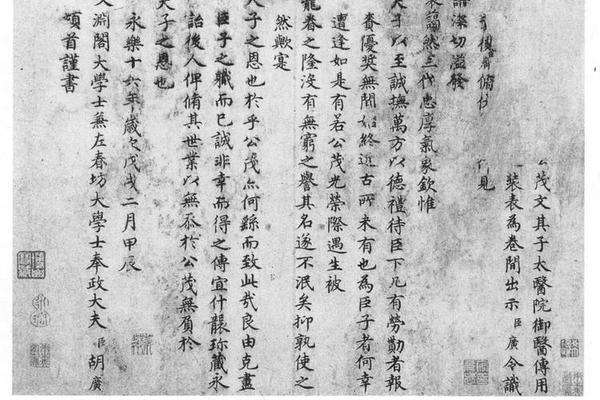 公茂文其子太醫院御醫傳用
裝表為卷間出示臣廣令識
見
深切溢發
藹然三代忠厚氣象欽惟
天子以至誠撫萬方以德禮待臣下凡有勞勩者報
賚優奬無間始終近古所未有也為臣子者何幸
遭逢如是有若公茂光榮際遇生被
寵眷之隆沒有無窮之譽其名遂不泯矣抑孰使之
然歟寔
天子之恩也於乎公茂亦何繇而致此哉良由克盡
臣子之職而已誠非幸而得之傳宜什襲珍藏永
詒後人俾脩其世業以無忝於公茂無負於
天子之恩也
永樂十六年歲次戊戌二月甲辰
文淵閣大學士兼左春坊大學士奉政大夫臣胡廣
頓首謹書